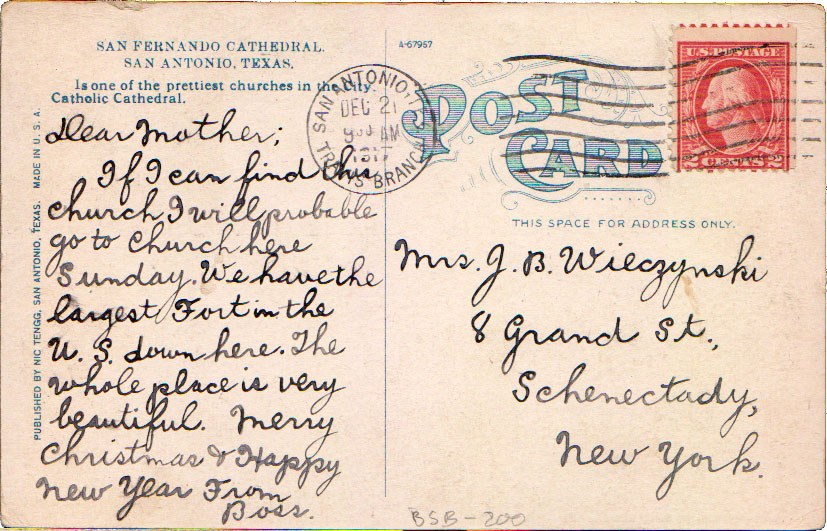 SAN FERNANDO CATHEDRAL.
SAN ANTONIO, TEXAS.
Is one of the prettiest churches in the City.
Catholic Cathedral.
Dear Mother;
If I can find this
church I will probable
go to Church here
Sunday. We have the
largest Fort in the
U. S. down here. The
whole place is very
beautiful. Merry
Christmas & Happy
New Year From
Boss.
PUBLISHED BY NIC TENGG, SAN ANTONIO, TEXAS. MADE IN U. S. A.
A-67957
SAN ANTONIO, T
DEC 21
9 AM
1917
BRANCH
POST
CARD
U.S. POSTAGE
2 CENTS 2
THIS SPACE FOR ADDRESS ONLY.
Mrs. J. B. Wieczynski
8 Grand St.,
Schenectady,
New York.
BSB-200